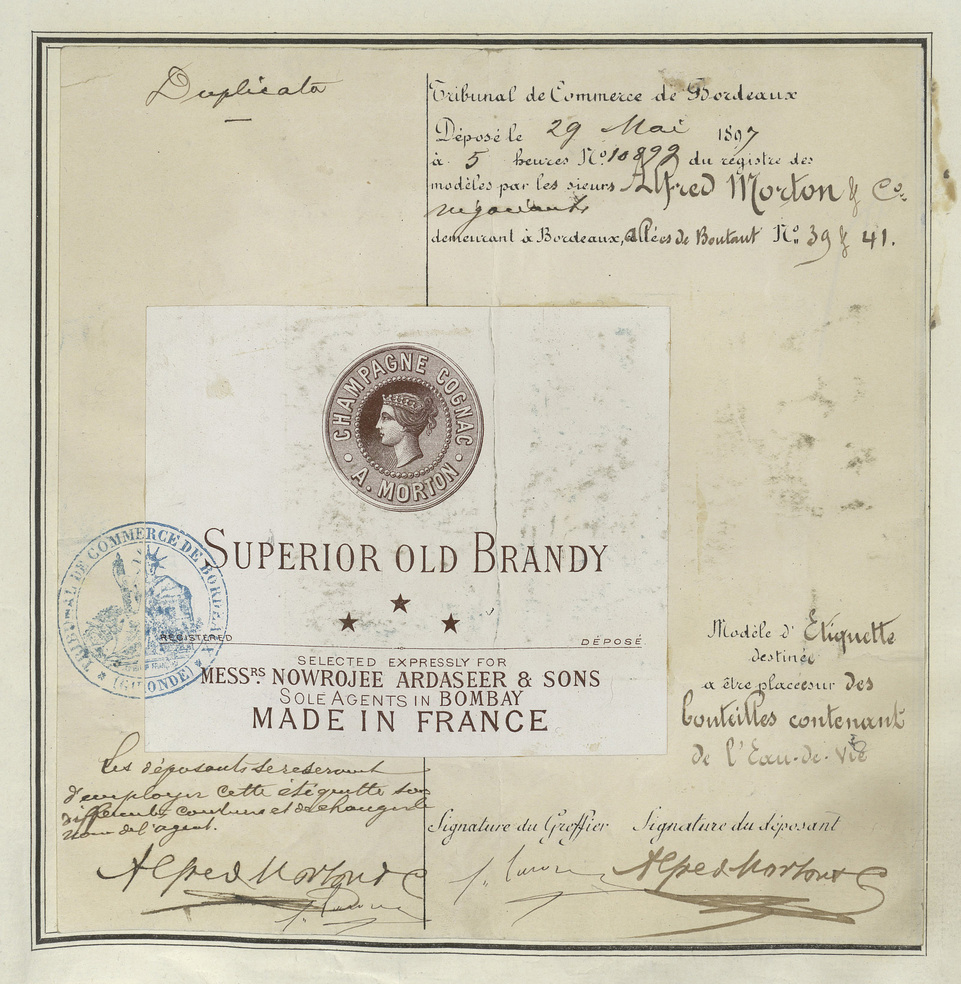 Duplicata
Tribunal de Commerce de Bordeaux
Déposé le 29 Mai 1897
à 5 heures Nº 10892 du régistre des
modèles par les sieurs Alfred Morton & Co.
négociants
demeurant à Bordeaux, allées de Boutaut Nº 39 & 41.
CHAMPAGNE COGNAC
• A. MORTON •
SUPERIOR OLD BRANDY
TRIBUNAL DE COMMERCE DE BORDEAUX
(GIRONDE)
REGISTERED
DÉPOSÉ
SELECTED EXPRESSLY FOR
MESSRS NOWROJEE ARDASEER & SONS
SOLE AGENTS IN BOMBAY
MADE IN FRANCE
Modèle d'Etiquette
destinée
a être placée sur des
bouteilles contenant
de l'Eau-de-Vie
Les déposants se reservent
d'employer cette étiquette sous
différentes couleurs et de changer le
nom de l'agent.
Signature du Greffier
Signature du déposant
Alfred Morton & C
Alfred Morton & C